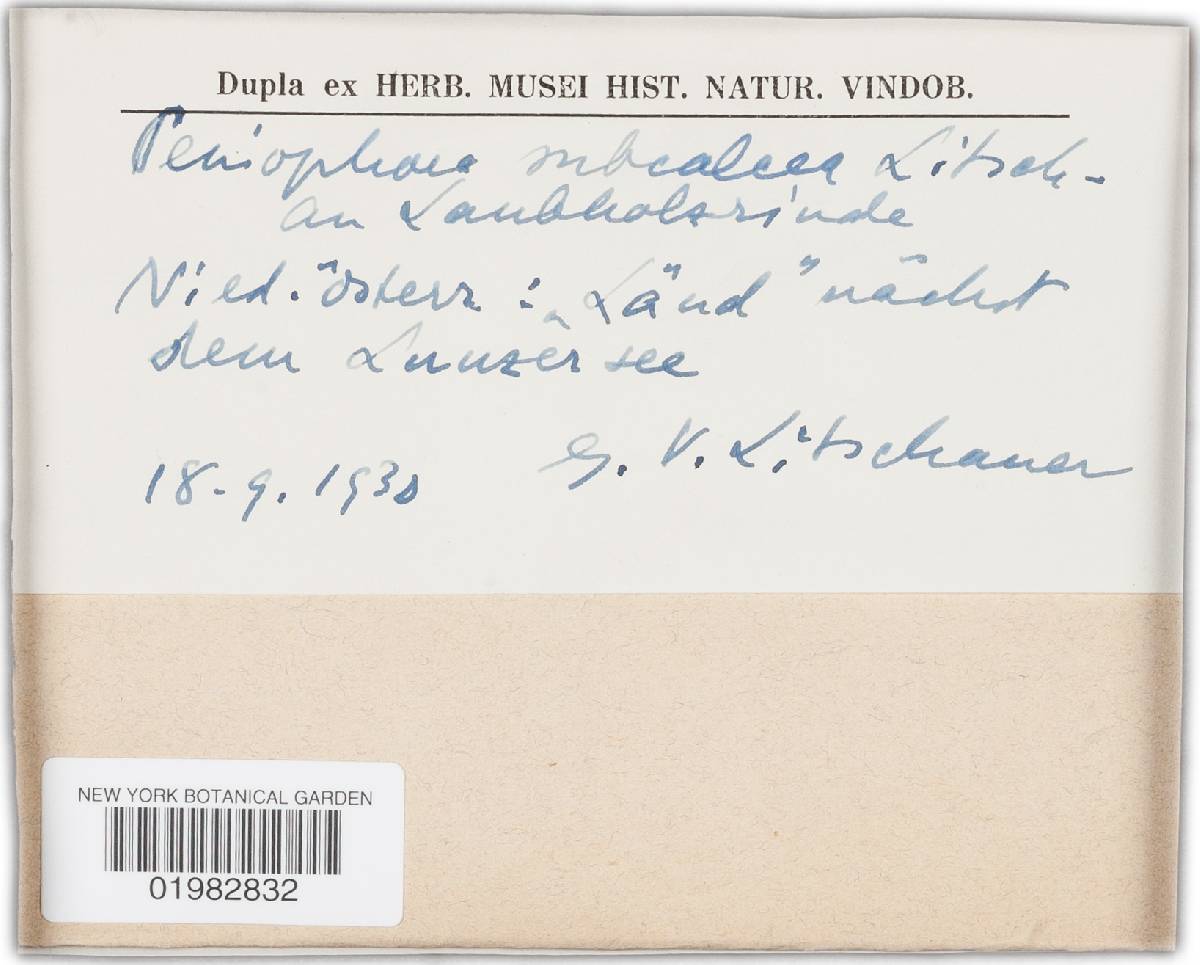 Dupla ex HERB. MUSEI HIST. NATUR. VINDOB.
Peniophora subcalcea Litsch-
an Laubholzrinde
Nied.österr: „Länd" nächst
dem Lunzer see
18-9. 1930
V. Litschauer
NEW YORK BOTANICAL GARDEN
01982832